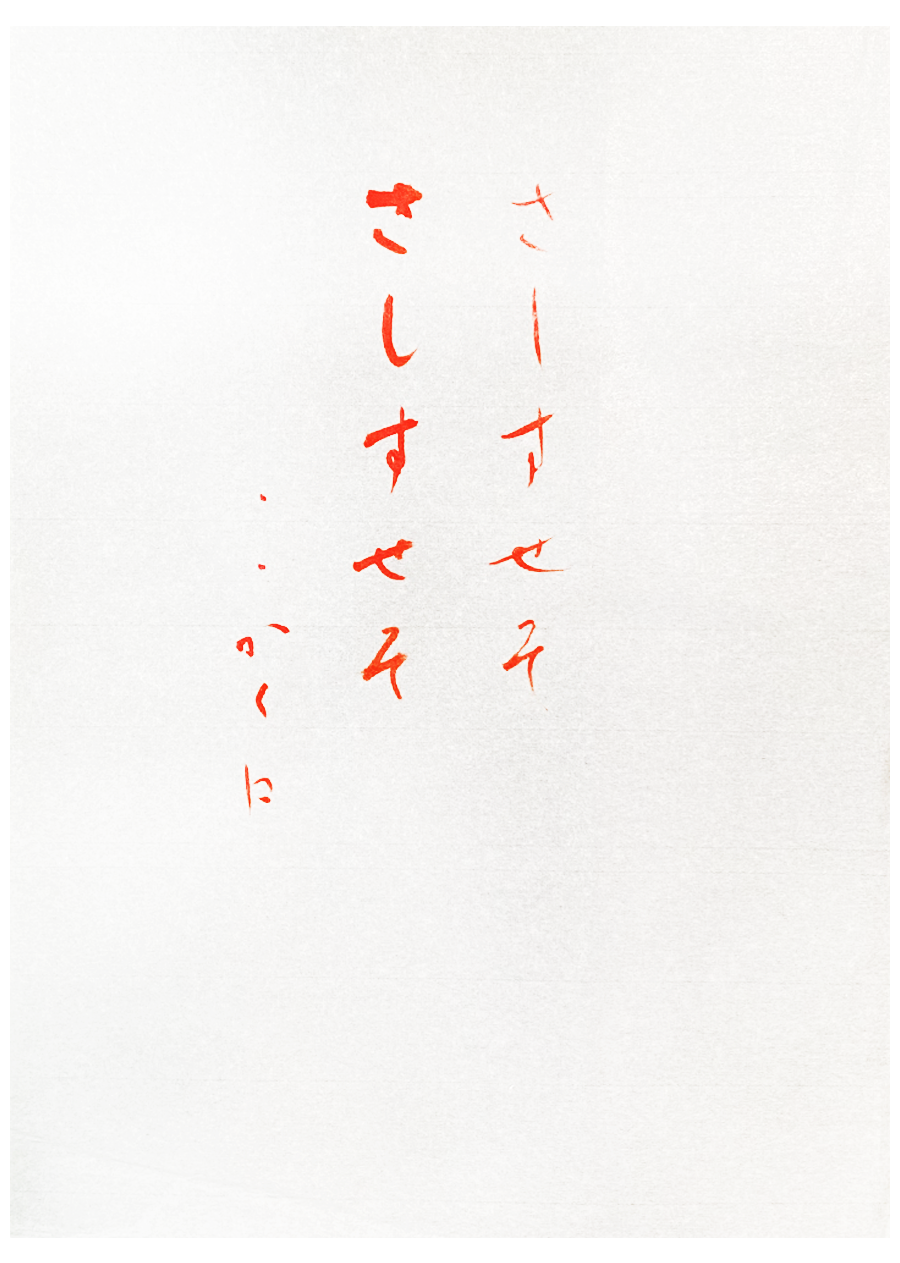 さしすせそ
さしすせそ
・・かくに